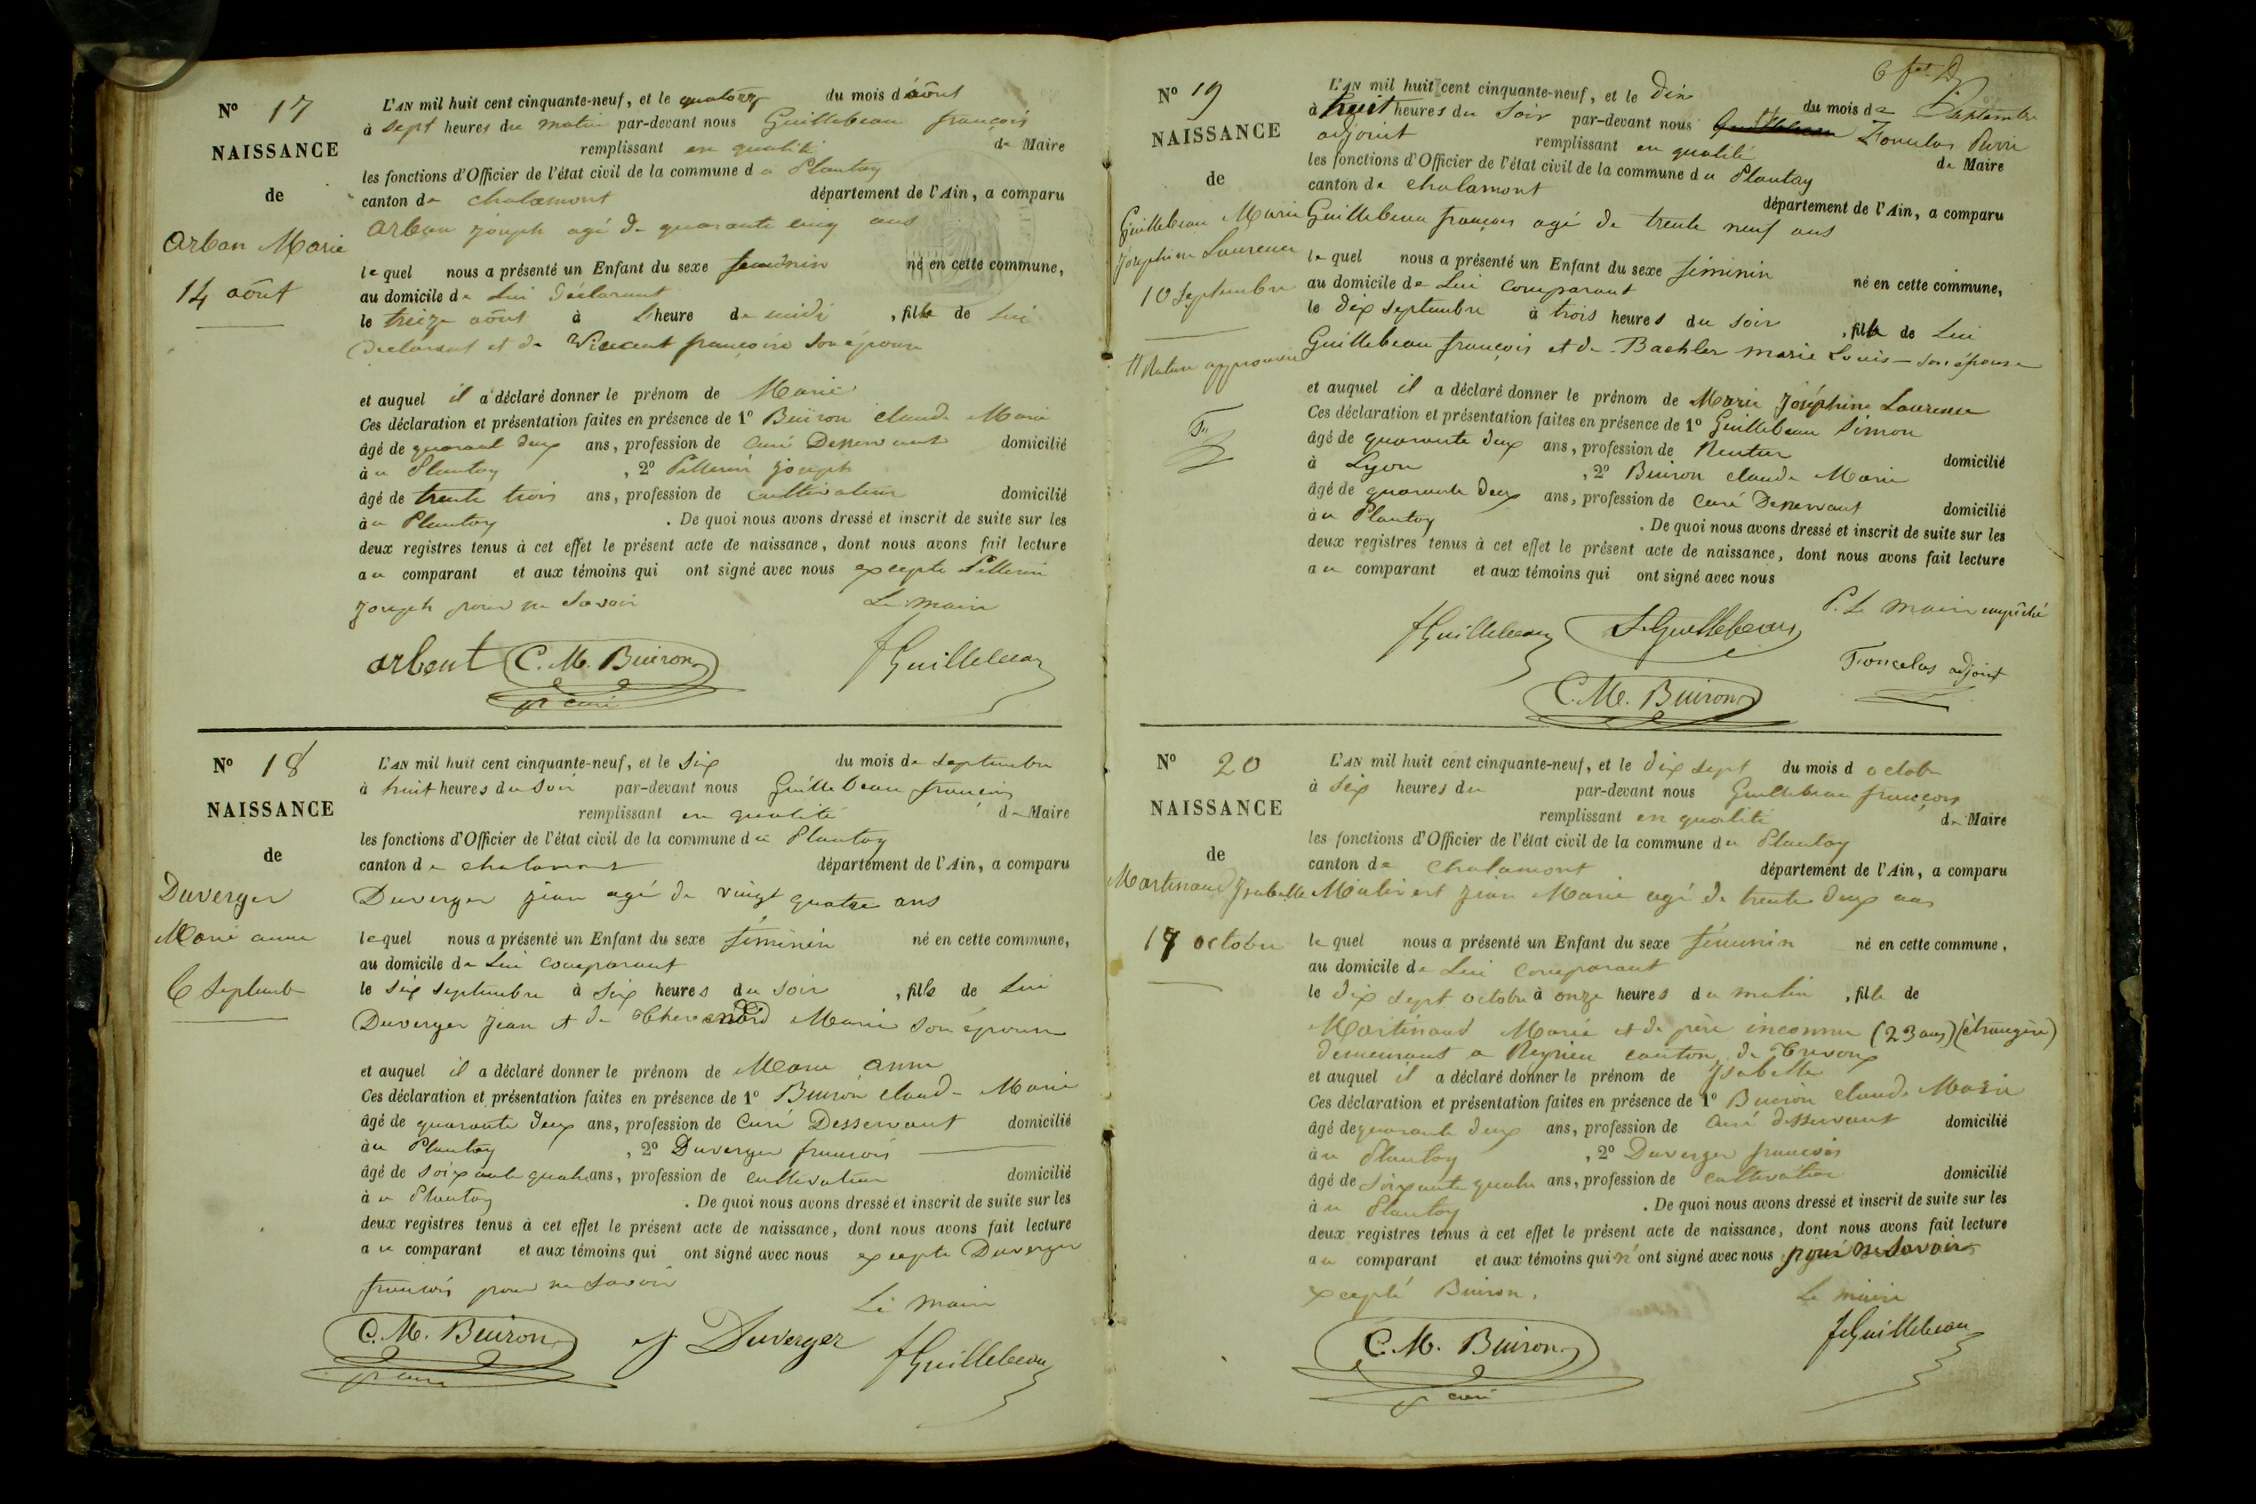 N° 17
NAISSANCE
de
Arban Marie
14 aôut
L'AN mil huit cent cinquante-neuf, et le quatorze du mois d'aôut
à sept heures du matin par-devant nous Guillebeau françois
remplissant en qualité de Maire
les fonctions d'Officier de l'état civil de la commune du Plantay
canton de chalamont département de l'Ain, a comparu
Arban joseph agé de quarante cinq ans
lequel nous a présenté un Enfant du sexe feminin né en cette commune,
au domicile de Lui déclarant
le treize aôut à L'heure de midi, fille de Lui
declarant et de Vincent françoise son épouse
et auquel il a déclaré donner le prénom de Marie
Ces déclaration et présentation faites en présence de 1° Buiron claude Marie
âgé de quarant deux ans, profession de curé Desservant domicilié
à u Plantay, 2° Pellerin joseph
âgé de trente trois ans, profession de cultivateur domicilié
à u Plantay. De quoi nous avons dressé et inscrit de suite sur les
deux registres tenus à cet effet le présent acte de naissance, dont nous avons fait lecture
au comparant et aux témoins qui ont signé avec nous excepte Pellerin
joseph pour ne Savoir Le maire
arbant C. M. Buiron fGuillebeau
curé
N° 18
NAISSANCE
de
Duverger
Marie anne
6 Septembre
L'AN mil huit cent cinquante-neuf, et le Six du mois de septembre
à huit heures du Soir par-devant nous Guillebeau françois
remplissant en qualité de Maire
les fonctions d'Officier de l'état civil de la commune du Plantay
canton de chalamont département de l'Ain, a comparu
Duverger jean agé de vingt quatre ans
lequel nous a présenté un Enfant du sexe féminin né en cette commune,
au domicile de Lui comparant
le six septembre à six heures du soir, fille de Lui
Duverger jean et de Marie son épouse
et auquel il a déclaré donner le prénom de Marie anne
Ces déclaration et présentation faites en présence de 1° Buiron claude Marie
âgé de quarante deux ans, profession de Curé Desservant domicilié
à u Plantay, 2° Duverger francois
âgé de soixante quatre ans, profession de cultivateur domicilié
à u Plantay. De quoi nous avons dressé et inscrit de suite sur les
deux registres tenus à cet effet le présent acte de naissance, dont nous avons fait lecture
au comparant et aux témoins qui ont signé avec nous excepte Duverger
francois pour ne savoir
Le maire
C. M. Buiron J Duverger fGuillebeau
curé
N° 19
NAISSANCE
de
Guillebeau Marie
Joséphine Laurence
10 Septembre
Rature approuvée
L'AN mil huit cent cinquante-neuf, et le Dix du mois de Septembre
à huit heures du Soir par-devant nous Guillebeau Foncelas Pierre
adjoint remplissant en qualité de Maire
les fonctions d'Officier de l'état civil de la commune du Plantay
canton de chalamont département de l'Ain, a comparu
Guillebeau françois agé de trente neuf ans
lequel nous a présenté un Enfant du sexe féminin né en cette commune,
au domicile de Lui comparant
le dix septembre à trois heures du soir, fille de Lui
Guillebeau françois et de Baehler marie Louis son épouse
et auquel il a déclaré donner le prénom de Marie Joséphine Laurence
Ces déclaration et présentation faites en présence de 1° Guillebeau Simon
âgé de quarante deux ans, profession de Rentier domicilié
à Lyon, 2° Buiron claude Marie
âgé de quarante deux ans, profession de curé Desservant domicilié
à u Plantay. De quoi nous avons dressé et inscrit de suite sur les
deux registres tenus à cet effet le présent acte de naissance, dont nous avons fait lecture
au comparant et aux témoins qui ont signé avec nous
P. Le maire empêché
fGuillebeau S. Guillebeau
Foncelas adjoint
C. M. Buiron
N° 20
NAISSANCE
de
Martinaud Ysabelle
17 octobre
L'AN mil huit cent cinquante-neuf, et le dix sept du mois d octobre
à six heures du par-devant nous Guillebeau françois
remplissant en qualité de Maire
les fonctions d'Officier de l'état civil de la commune du Plantay
canton de Chalamont département de l'Ain, a comparu
jean Marie agé de trente deux ans
lequel nous a présenté un Enfant du sexe féminin né en cette commune,
au domicile de Lui comparant
le dix sept octobre à onze heures du matin, fille de
Martinaud Marie et de père inconnu (23 ans) (étrangère)
demeurant a Reyrieu canton de Trevoux
et auquel il a déclaré donner le prénom de Ysabelle
Ces déclaration et présentation faites en présence de 1° Buiron claude Marie
âgé de quarante deux ans, profession de Curé desservant domicilié
à u Plantay, 2° Duverger francois
âgé de soixante quatre ans, profession de cultivateur domicilié
à u Plantay. De quoi nous avons dressé et inscrit de suite sur les
deux registres tenus à cet effet le présent acte de naissance, dont nous avons fait lecture
au comparant et aux témoins qui n'ont signé avec nous pour ne savoir
excepté Buiron. Le maire
C. M. Buiron fGuillebeau
curé